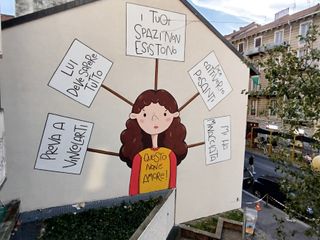 I TUOI
SPAZI NON
ESISTONO
LUI
DEVE SAPERE
TUTTO
PESANTI
PROVA A
VINCOLARTI
TI
MINACCIA
QUESTO
NON È
AMORE!